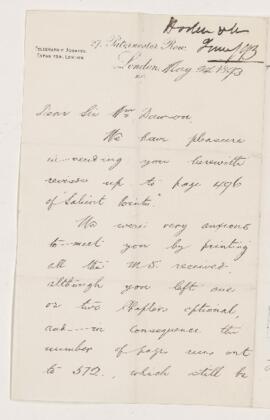 Hodder & Co
June/93
27, Paternoster Row,
TELEGRAPHIC ADDRESS,
London, May 1893
Dear Sir Wm Dawson,
We have pleasure
in sending you herewith
revise up to page 496
of "Salient Points".
We were very anxious
to meet you by printing
all the M.S. received,
although you left one
or two Chapters optional,
and in consequence the
number of pages runs out
to 572, which will be